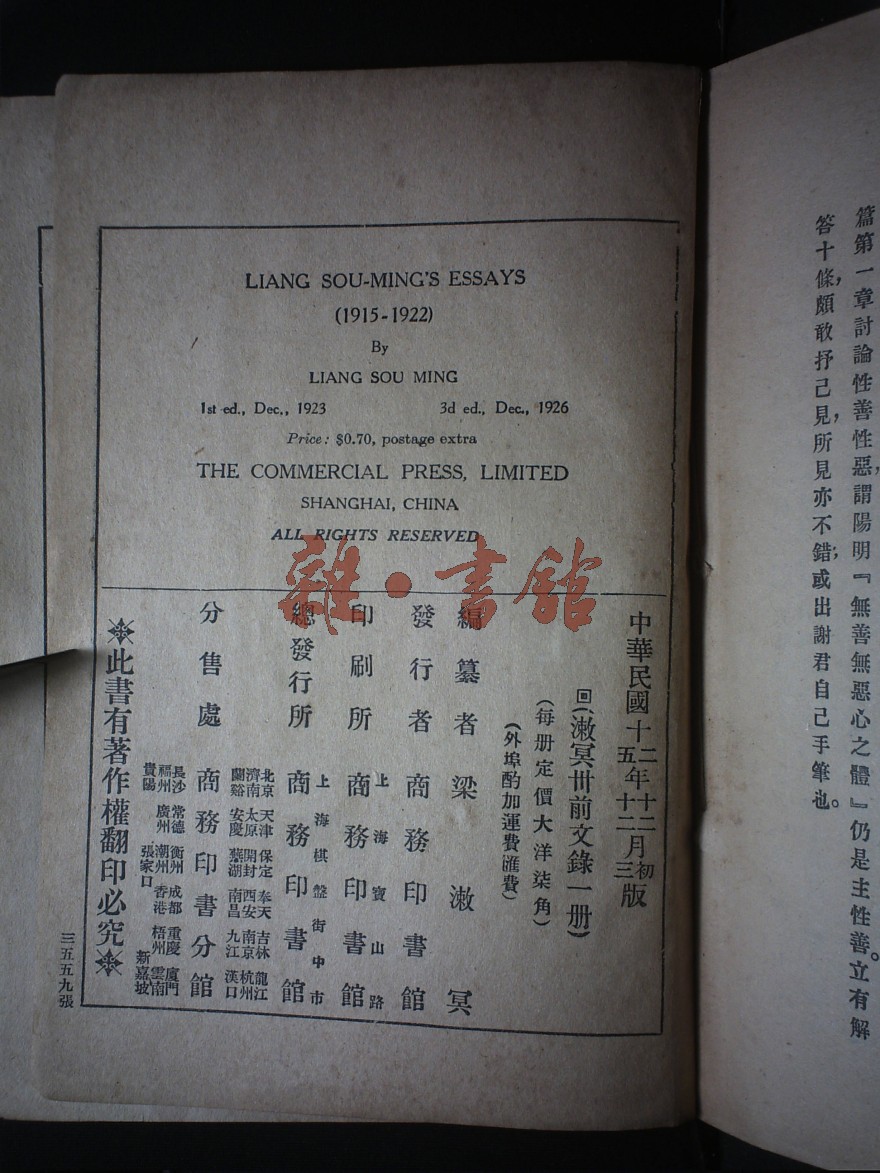 篇第一章討論性善性惡，謂陽明『無善無惡心之體』仍是主性善。立有解
答十條，頗敢抒己見，所見亦不錯；或出謝君自己手筆也。
LIANG SOU-MING'S ESSAYS
(1915-1922)
By
LIANG SOU MING
1st ed., Dec., 1923 3d ed., Dec., 1926
Price: $0.70, postage extra
THE COMMERCIAL PRESS, LIMITED
SHANGHAI, CHINA
ALL RIGHTS RESERVED
雜·書館
中華民國十二年十二月初版
五 十 三
回(漱冥卅前文錄一册)
(每册定價大洋柒角)
(外埠酌加運費滙費)
編纂者 梁漱冥
發行者 商務印書館
上海寶山路
印刷所 商務印書館
上海棋盤街中市
總發行所 商務印書館
北京 天津 保定 奉天 吉林 龍江
濟南 太原 開封 西安 南京 杭州
蘭谿 安慶 蕪湖 南昌 九江 漢口
分售處 商務印書分館
長沙 常德 衡州 成都 重慶 廈門
福州 廣州 潮州 香港 梧州 雲南
貴陽 張家口 新嘉坡
此書有著作權翻印必究
三五五九張